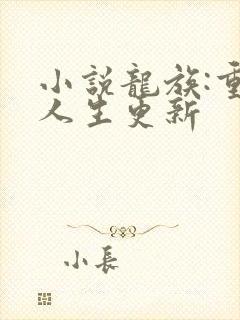 小說龍族:重
人生更新
小長